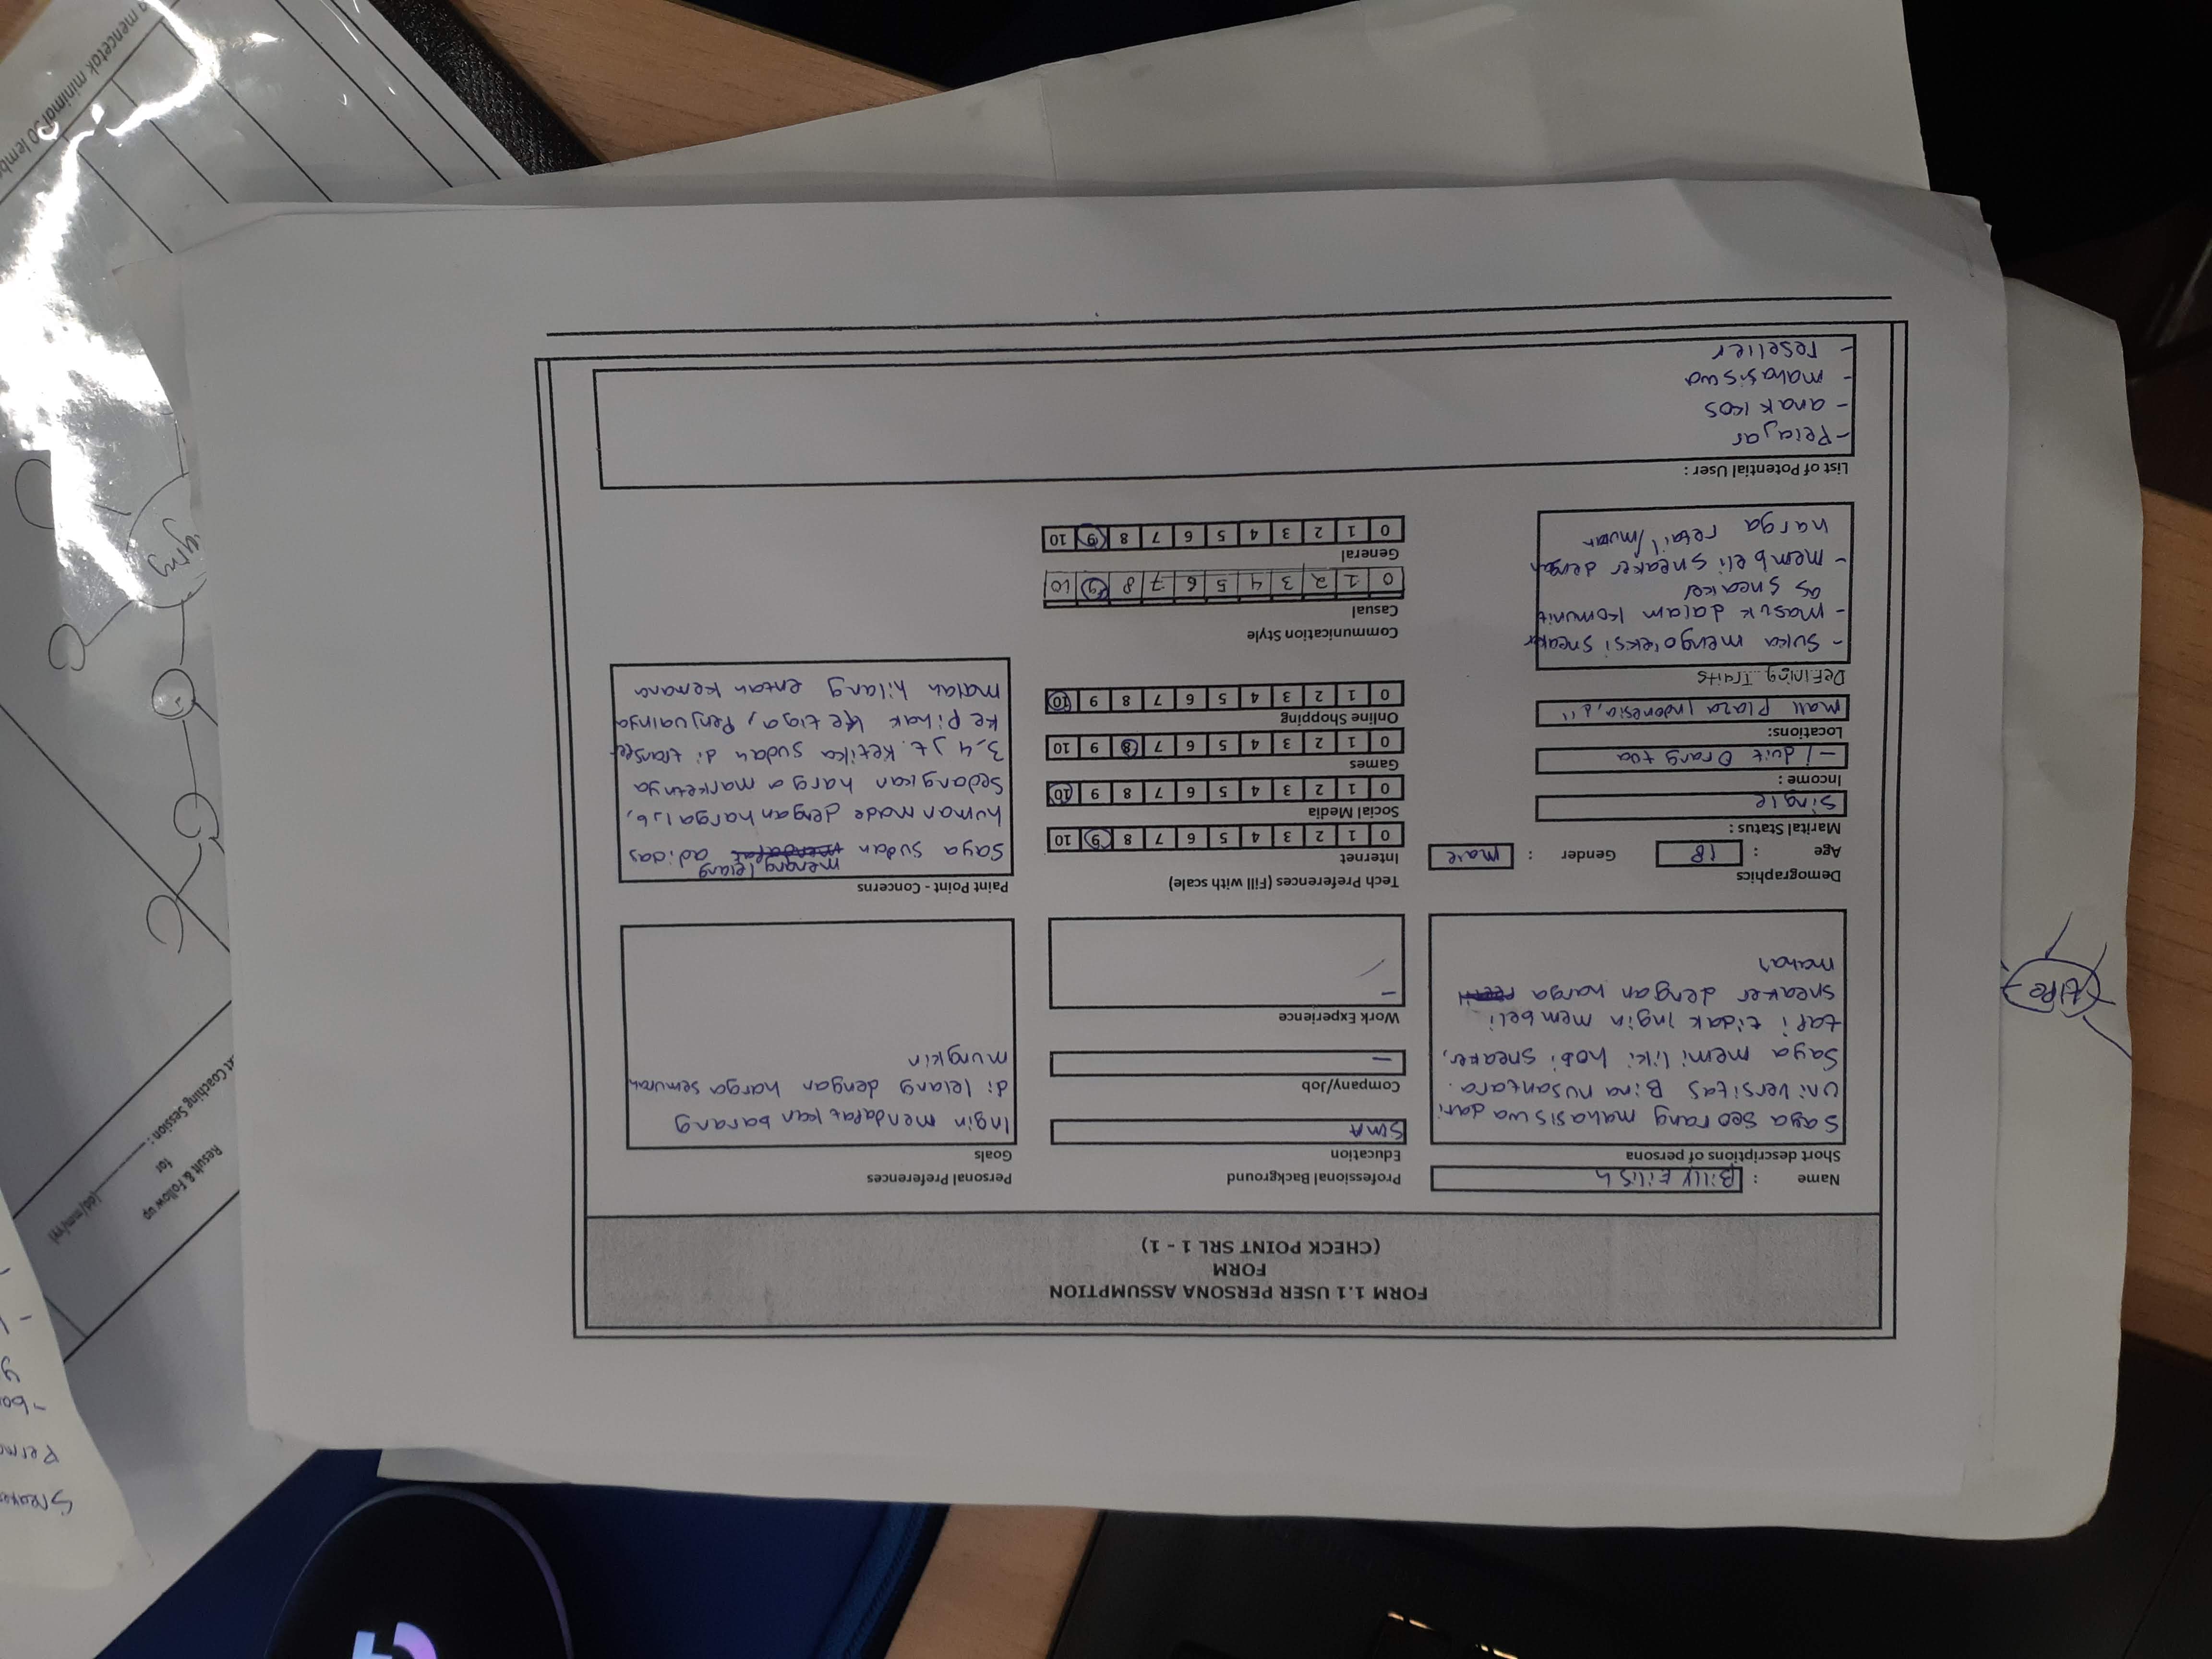 FORM 1.1 USER PERSONA ASSUMPTION
FORM
(CHECK POINT SRL 1 - 1)
Name : Billy Eilish
Short descriptions of persona
Saya seorang mahasiswa dari
Universitas Bina nusantara.
Saya memiliki hobi sneaker,
tapi tidak ingin membeli
sneaker dengan harga
mahal
Demographics
Age : 18 Gender : male
Marital Status :
Single
Income :
- / duit orang tua
Locations:
mall Plaza Indonesia, d"
Defining Traits
- suka mengoleksi sneaker
- masuk dalam komunit
as sneaker
- membeli sneaker dengan
harga retail/murah
Professional Background
Education
SMA
Company/Job
-
Work Experience
-
Tech Preferences (Fill with scale)
Internet
0 1 2 3 4 5 6 7 8 9 10
Social Media
0 1 2 3 4 5 6 7 8 9 10
Games
0 1 2 3 4 5 6 7 8 9 10
Online Shopping
0 1 2 3 4 5 6 7 8 9 10
Communication Style
Casual
0 1 2 3 4 5 6 7 8 9 10
General
0 1 2 3 4 5 6 7 8 9 10
Personal Preferences
Goals
Ingin mendapatkan barang
di lelang dengan harga semurah
mungkin
Paint Point - Concerns
menang lelang
Saya sudah mendapat adidas
human made dengan harga
Sedangkan harga marketnya
3,4 jt. Ketika sudah di transfer
ke pihak ketiga, Penjualnya
malah hilang entah kemana
List of Potential User :
- Pelajar
- anak kos
- mahasiswa
- reseller
Result & Follow up
for
Coaching Session : (dd/mm/yy)
mencetak minimal 50 lemb